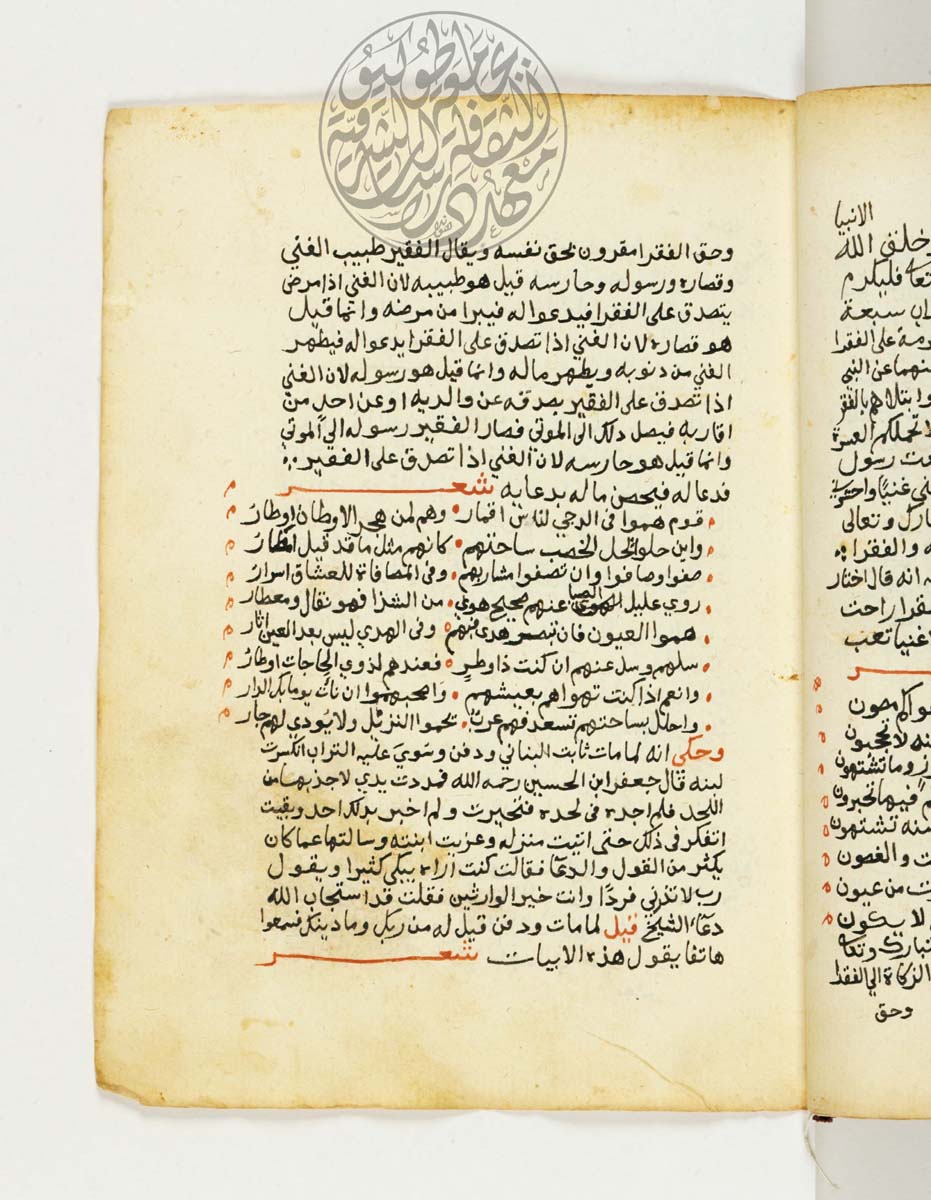 وحق الفقرا مقرون بحق نفسه ويقال الفقير طبيب الغني
وقصاره ورسوله وحارسه قيل هو طبيبه لان الغني اذا مرض
يتصدق على الفقرا فيدعوا له فيبرا من مرضه وانما قيل
هو قصاره لان الغني اذا تصدق على الفقرا يدعوا له فيطهر
الغني من ذنوبه ويطهر ماله وانما قيل هو رسوله لان الغني
اذا تصدق على الفقير بصدقه عن والديه او عن احد من
اقاربه فيصل ذلك الى الموتي فصار الفقير رسوله الي الموتي
وانما قيل هو حارسه لان الغني اذا تصدق على الفقير
فدعا له فيحصن ماله بدعايه شعر
قوم هموا في الدجي للناس اقمار وهم لمن هجر الاوطان اوطار
واين حلوا تحل الخصب ساحتهم كانهم مثل ما قد قيل امطار
صفوا وصافوا وان تصفوا مشاربهم وفي المصافاة للعشاق اسرار
روي عليل الصبا عنهم صحيح هوي من الشذا فهو نقال ومعطار
هموا العيون فان تبصر هدي فبهم وفي الهدي ليس بعد العين اثار
سلهم وسل عنهم ان كنت ذا وطر فعندهم لذوي الحاجات اوطار
وانعم اذا كنت تهواهم بعيشهم واصحبهموا ان نات يوما بك الدار
واحلل بساحتهم تسعد فهم عرب يحموا النزيل ولا يودي لهم جار
وحكى انه لما مات ثابت البناني ودفن وسوي عليه التراب انكسرت
لبنه قال جعفر ابن الحسين رحمه الله فمددت يدي لاجذبها من
اللحد فلم اجده في لحده فتحيرت ولم اخبر بذلك احد وبقيت
اتفكر في ذلك حتى اتيت منزله وعزيت ابنته وسالتها عما كان
يكثر من القول والدعا فقالت كنت اراه يبكي كثيرا ويقول
رب لا تذرني فردا وانت خير الوارثين فقلت قد استجاب الله
دعا الشيخ قيل لما مات ودفن قيل له من ربك وما دينك فسمعوا
هاتفا يقول هذه الابيات شعر
الانبيا
خلق الله
فليكرم
سبعة
على الفقرا
عن النبي
بالفقر
رسول
وتعالى
والفقرا
انه قال اختار
راحت
تعب
وما تشتهون
تشتهون
والغصون
من عيون
لا يكون
تبارك وتعا
الزكاة الى الفقرا
وحق
معهد الثقافة والدراسات الشرقية